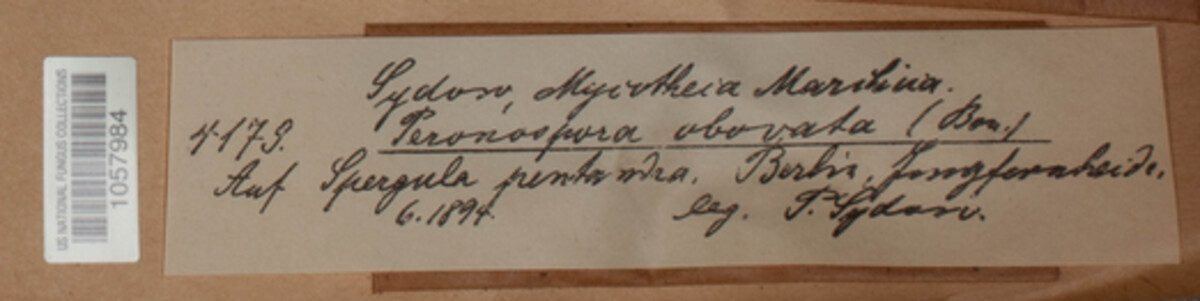 US NATIONAL FUNGUS COLLECTIONS
1057984
Sydow, Mycotheca Marchica.
4179. Peronospora obovata (Bon.)
Auf Spergula pentandra. Berlin, Jungfernheide.
6. 1894. leg. P. Sydow.